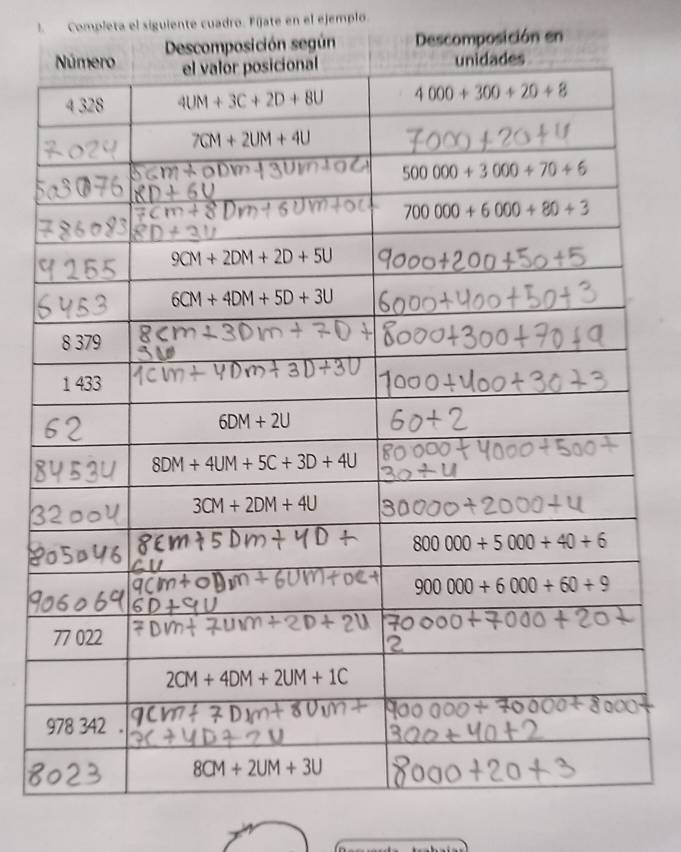 1. Completa el siguiente cuadro. Fíjate en el ejemplo.
Número Descomposición según el valor posicional Descomposición en unidades
4 328 4UM + 3C + 2D + 8U 4 000 + 300 + 20 + 8
7024 7CM + 2UM + 4U 7000 + 20 + 4
503076 5cm + 0Dm + 3Um + 0c 500 000 + 3 000 + 70 + 6
8D + 6U
786083 7cm + 8Dm + 6Um + 0c + 700 000 + 6 000 + 80 + 3
8D + 3U
9255 9CM + 2DM + 2D + 5U 9000+200+50+5
6453 6CM + 4DM + 5D + 3U 6000+400+50+3
8 379 8cm + 3Dm + 7D + 8000+300+70+9
3U
1 433 1cm + 4Dm + 3D + 3U 1000+400+30+3
62 6DM + 2U 60+2
84534 8DM + 4UM + 5C + 3D + 4U 80000 + 4000 + 500 +
30 + 4
32004 3CM + 2DM + 4U 30000+2000+4
805046 8cm + 5Dm + 4D + 800 000 + 5 000 + 40 + 6
6U
906069 9cm + 0Dm + 6Um + 0c + 900 000 + 6 000 + 60 + 9
6D + 9U
77 022 7Dm + 7Um + 2D + 2U 70000+7000+20+
2
2CM + 4DM + 2UM + 1C
978 342 . 9cm + 7Dm + 8Um + 900 000 + 70000 + 8000 +
3c + 4D + 2U 300 + 40 + 2
8023 8CM + 2UM + 3U 8000 + 20 + 3